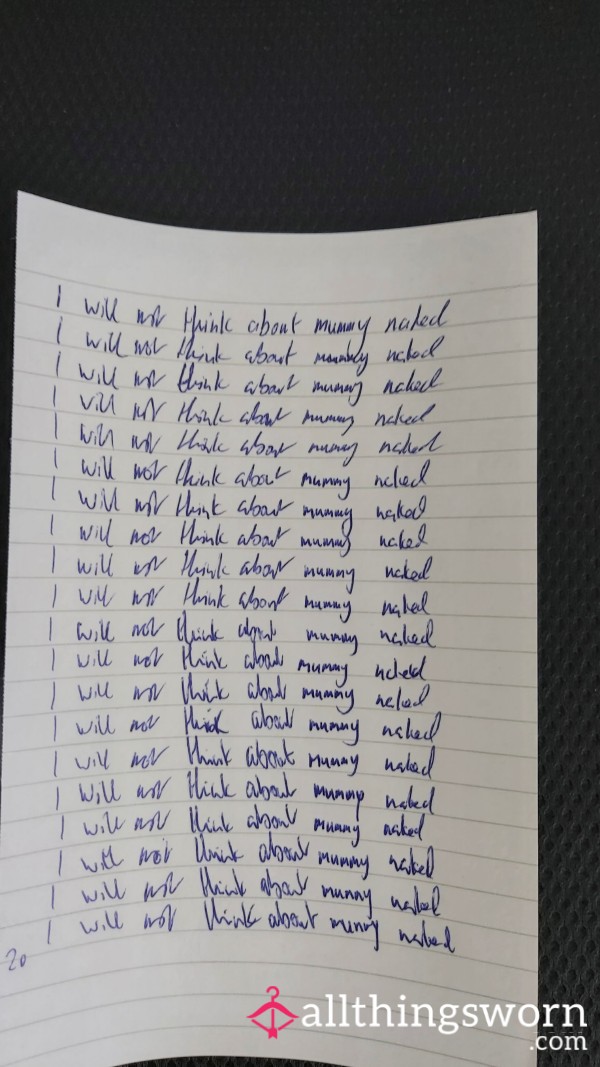 I will not think about mummy naked
I will not think about mummy naked
I will not think about mummy naked
I will not think about mummy naked
I will not think about mummy naked
I will not think about mummy naked
I will not think about mummy naked
I will not think about mummy naked
I will not think about mummy naked
I will not think about mummy naked
I will not think about mummy naked
I will not think about mummy naked
I will not think about mummy naked
I will not think about mummy naked
I will not think about mummy naked
I will not think about mummy naked
I will not think about mummy naked
I will not think about mummy naked
I will not think about mummy naked
I will not think about mummy naked
20
allthingsworn
.com